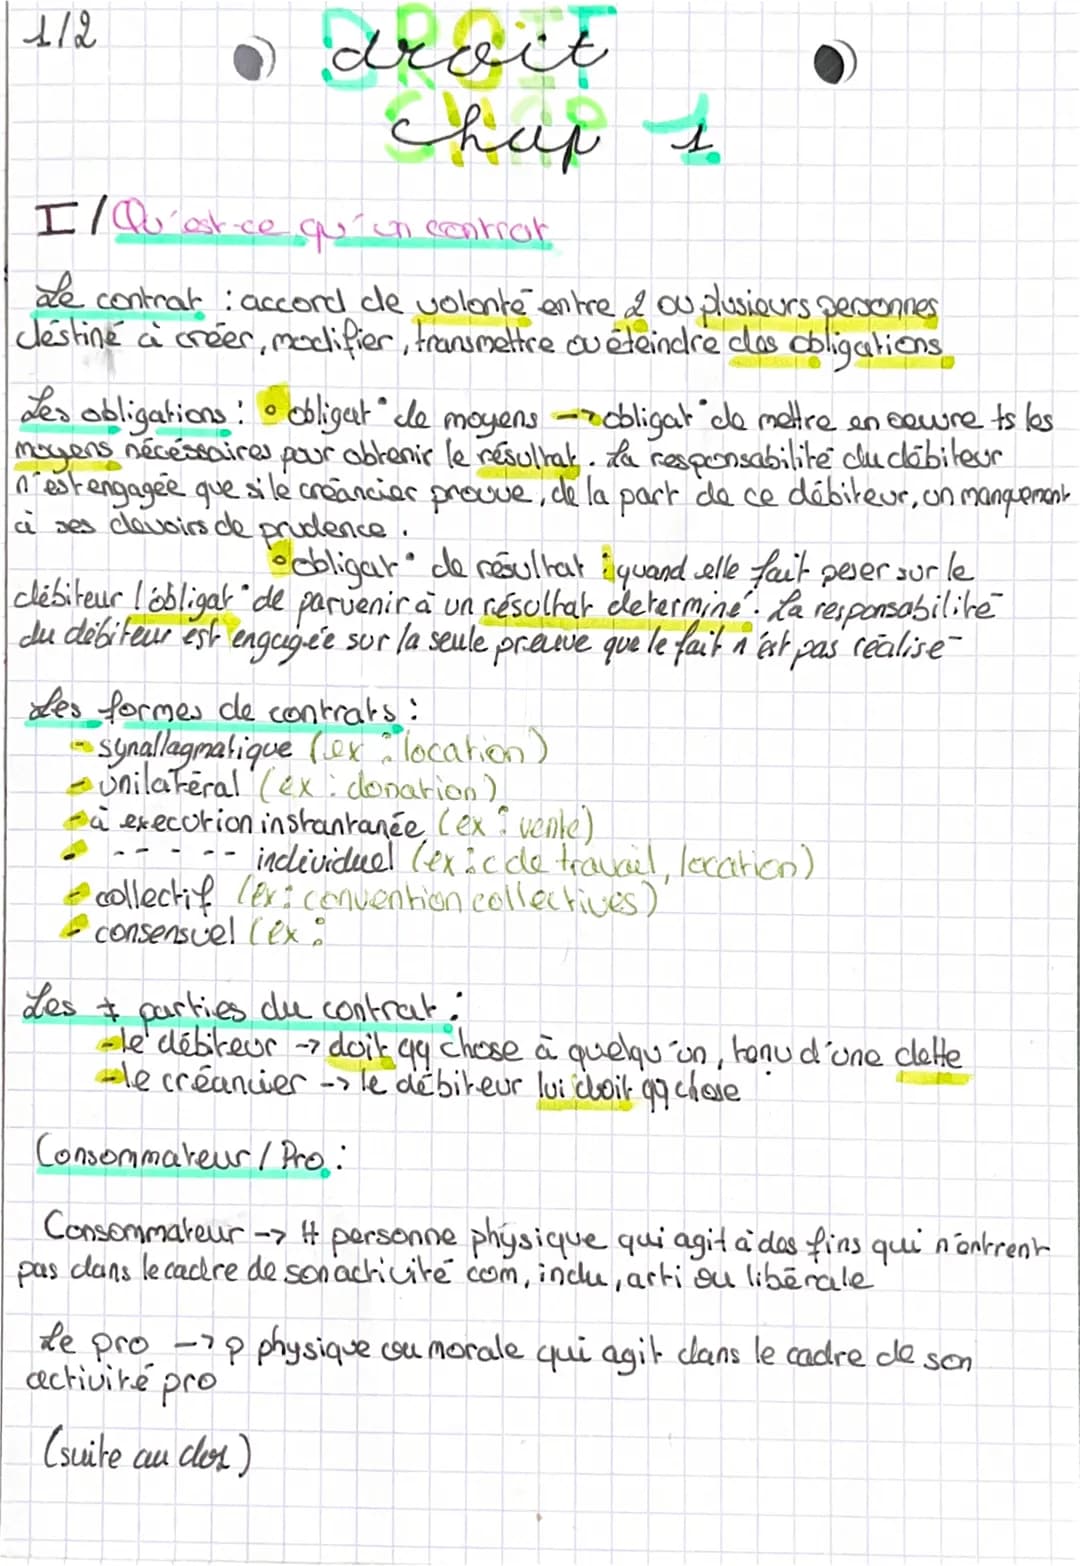 1/2
droit
chap 1
I/Qu'est-ce qu'un contrat
Le contrat : accord de volonté entre 2 ou plusieurs personnes
déstiné à créer, modifier, transmettre ou éteindre des obligations
Les obligations : • obligat° de moyens → obligat° de mettre en oeuvre ts les
moyens nécéssaires pour obtenir le résultat. La responsabilité du débiteur
n'est engagée que si le créancier prouve, de la part de ce débiteur, un manquement
à ses devoirs de prudence.
• obligat° de résultat : quand elle fait peser sur le
débiteur l'obligat° de parvenir à un résultat determiné. La responsabilité
du débiteur est engagée sur la seule preuve que le fait n'est pas réalisé
Les formes de contrats :
- synallagmatique (ex : location)
- unilatéral (ex : donation)
- à execution instantanée (ex : vente)
- - - - - - individuel (ex : c de travail, location)
- collectif (ex : convention collectives)
- consensuel (ex :
Les ≠ parties du contrat :
- le débiteur → doit qq chose à quelqu'un, tenu d'une dette
- le créancier → le débiteur lui doit qq chose
Consommateur / Pro :
Consommateur → # personne physique qui agit à des fins qui n'entrent
pas dans le cadre de son activité com, indu, arti ou libérale
Le pro → p physique ou morale qui agit dans le cadre de son
activité pro
(suite au dos)